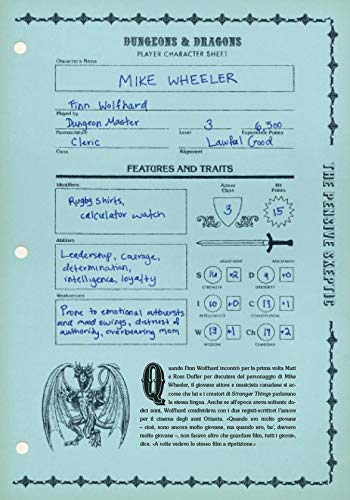 DUNGEONS & DRAGONS
PLAYER CHARACTER SHEET
Character's Name
MIKE WHEELER
Finn Wolfhard
Played by
Dungeon Master 3 6,500
Nomenclature Level Experience Points
Cleric Lawful Good
Class Alignment
FEATURES AND TRAITS
Identifiers
Rugby shirts,
calculator watch
Armor
Class
3
Hit
Points
15
Abilities
Leadership, courage,
determination,
intelligence, loyalty
ADJUSTMENT ADJUSTMENT
S 16 +2 D 9 +0
STRENGTH DEXTERITY
I 10 +0 C 13 +1
INTELLIGENCE CONSTITUTION
W 13 +1 Ch 17 +2
WISDOM CHARISMA
Weaknesses
Prone to emotional outbursts
and mood swings, distrust of
authority, overbearing mom
THE PENSIVE SKEPTIC
Quando Finn Wolfhard incontrò per la prima volta Matt
e Ross Duffer per discutere del personaggio di Mike
Wheeler, il giovane attore e musicista canadese si ac-
corse che lui e i creatori di Stranger Things parlavano
la stessa lingua. Anche se all'epoca aveva soltanto do-
dici anni, Wolfhard condivideva con i due registi-scrittori l'amore
per il cinema degli anni Ottanta. «Quando ero molto giovane
– cioè, sono ancora molto giovane, ma quando ero, be', davvero
molto giovane –, non facevo altro che guardare film, tutti i giorni»,
dice. «A volte vedevo lo stesso film a ripetizione.»